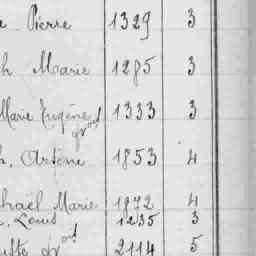 Pierre 1329 3
h Marie 1285 3
Marie Eugène 1333 3
gvat
h. Artène 1853 4
chaël Marie 1872 4
. Louis 1235 3
uste gvat 2114 5